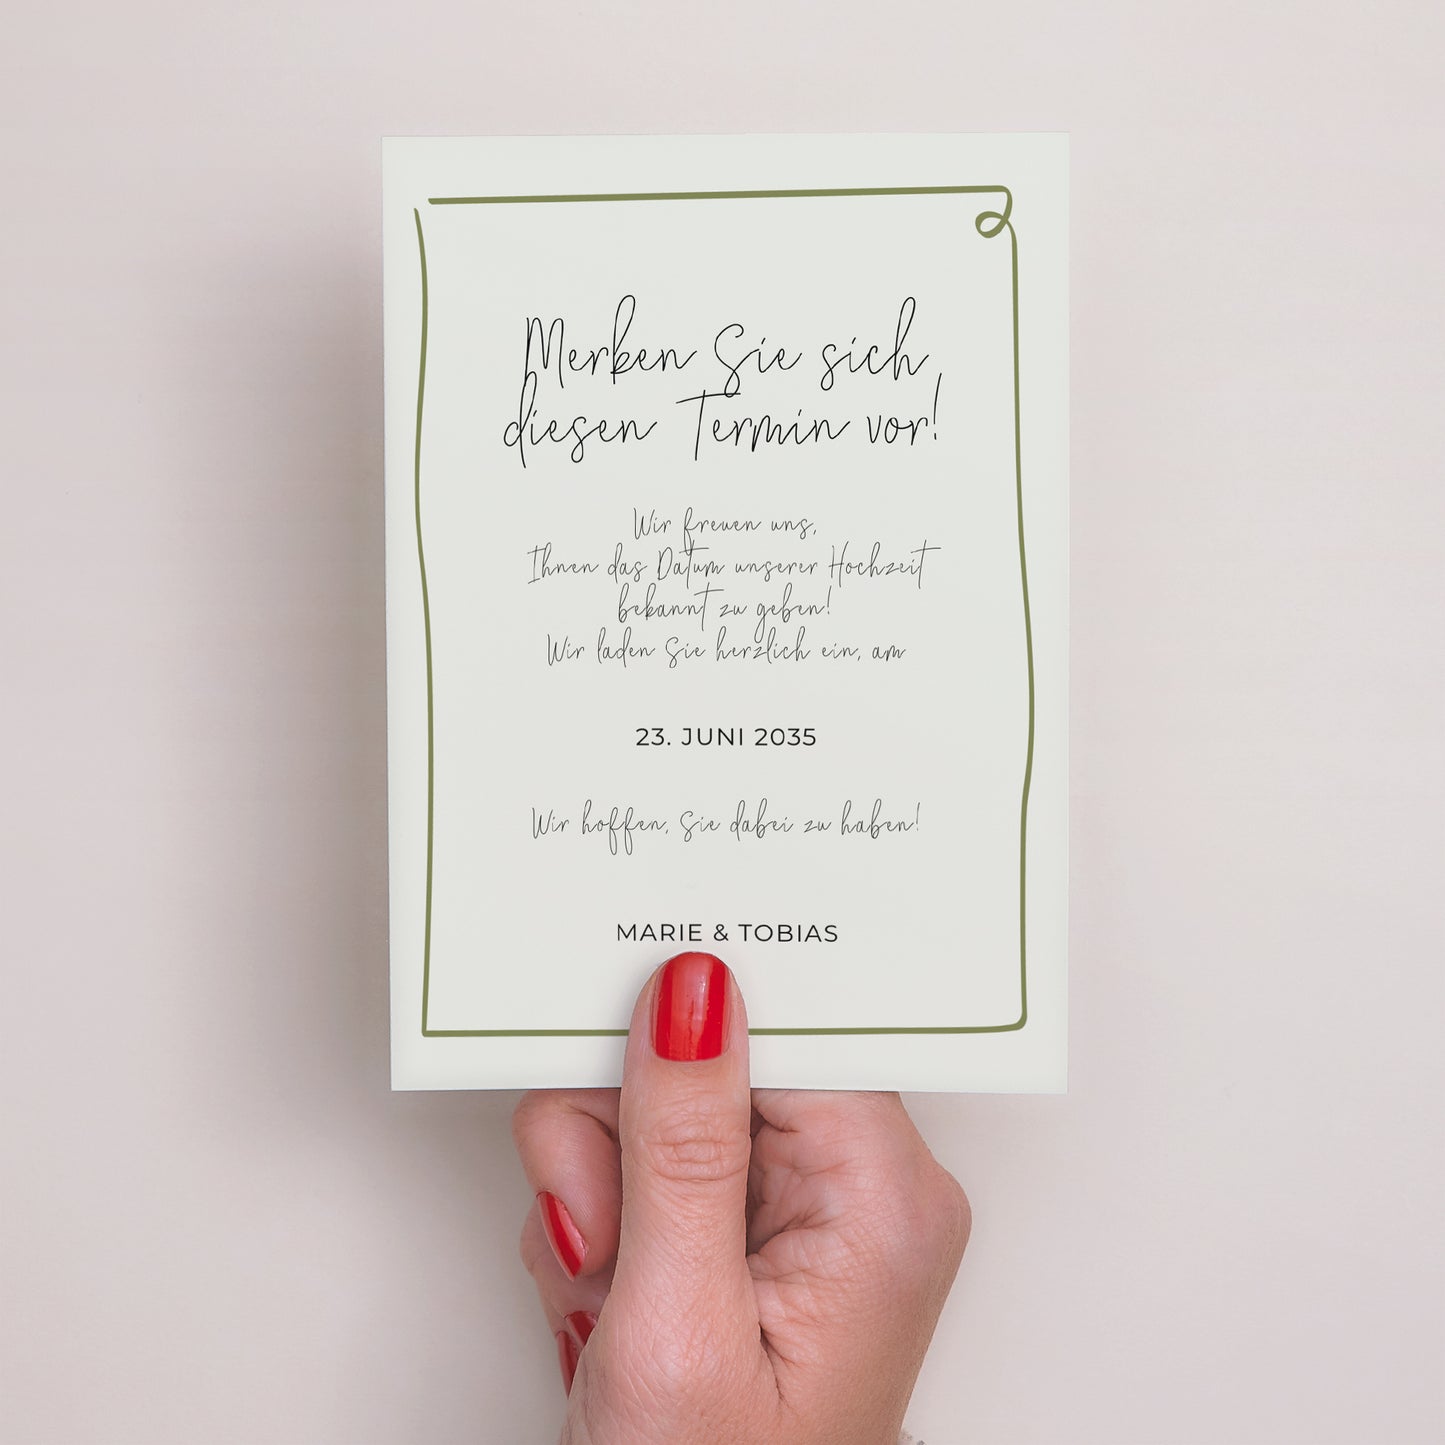 Merken Sie sich
diesen Termin vor!
Wir freuen uns,
Ihnen das Datum unserer Hochzeit
bekannt zu geben!
Wir laden Sie herzlich ein, am
23. JUNI 2035
Wir hoffen, Sie dabei zu haben!
MARIE & TOBIAS